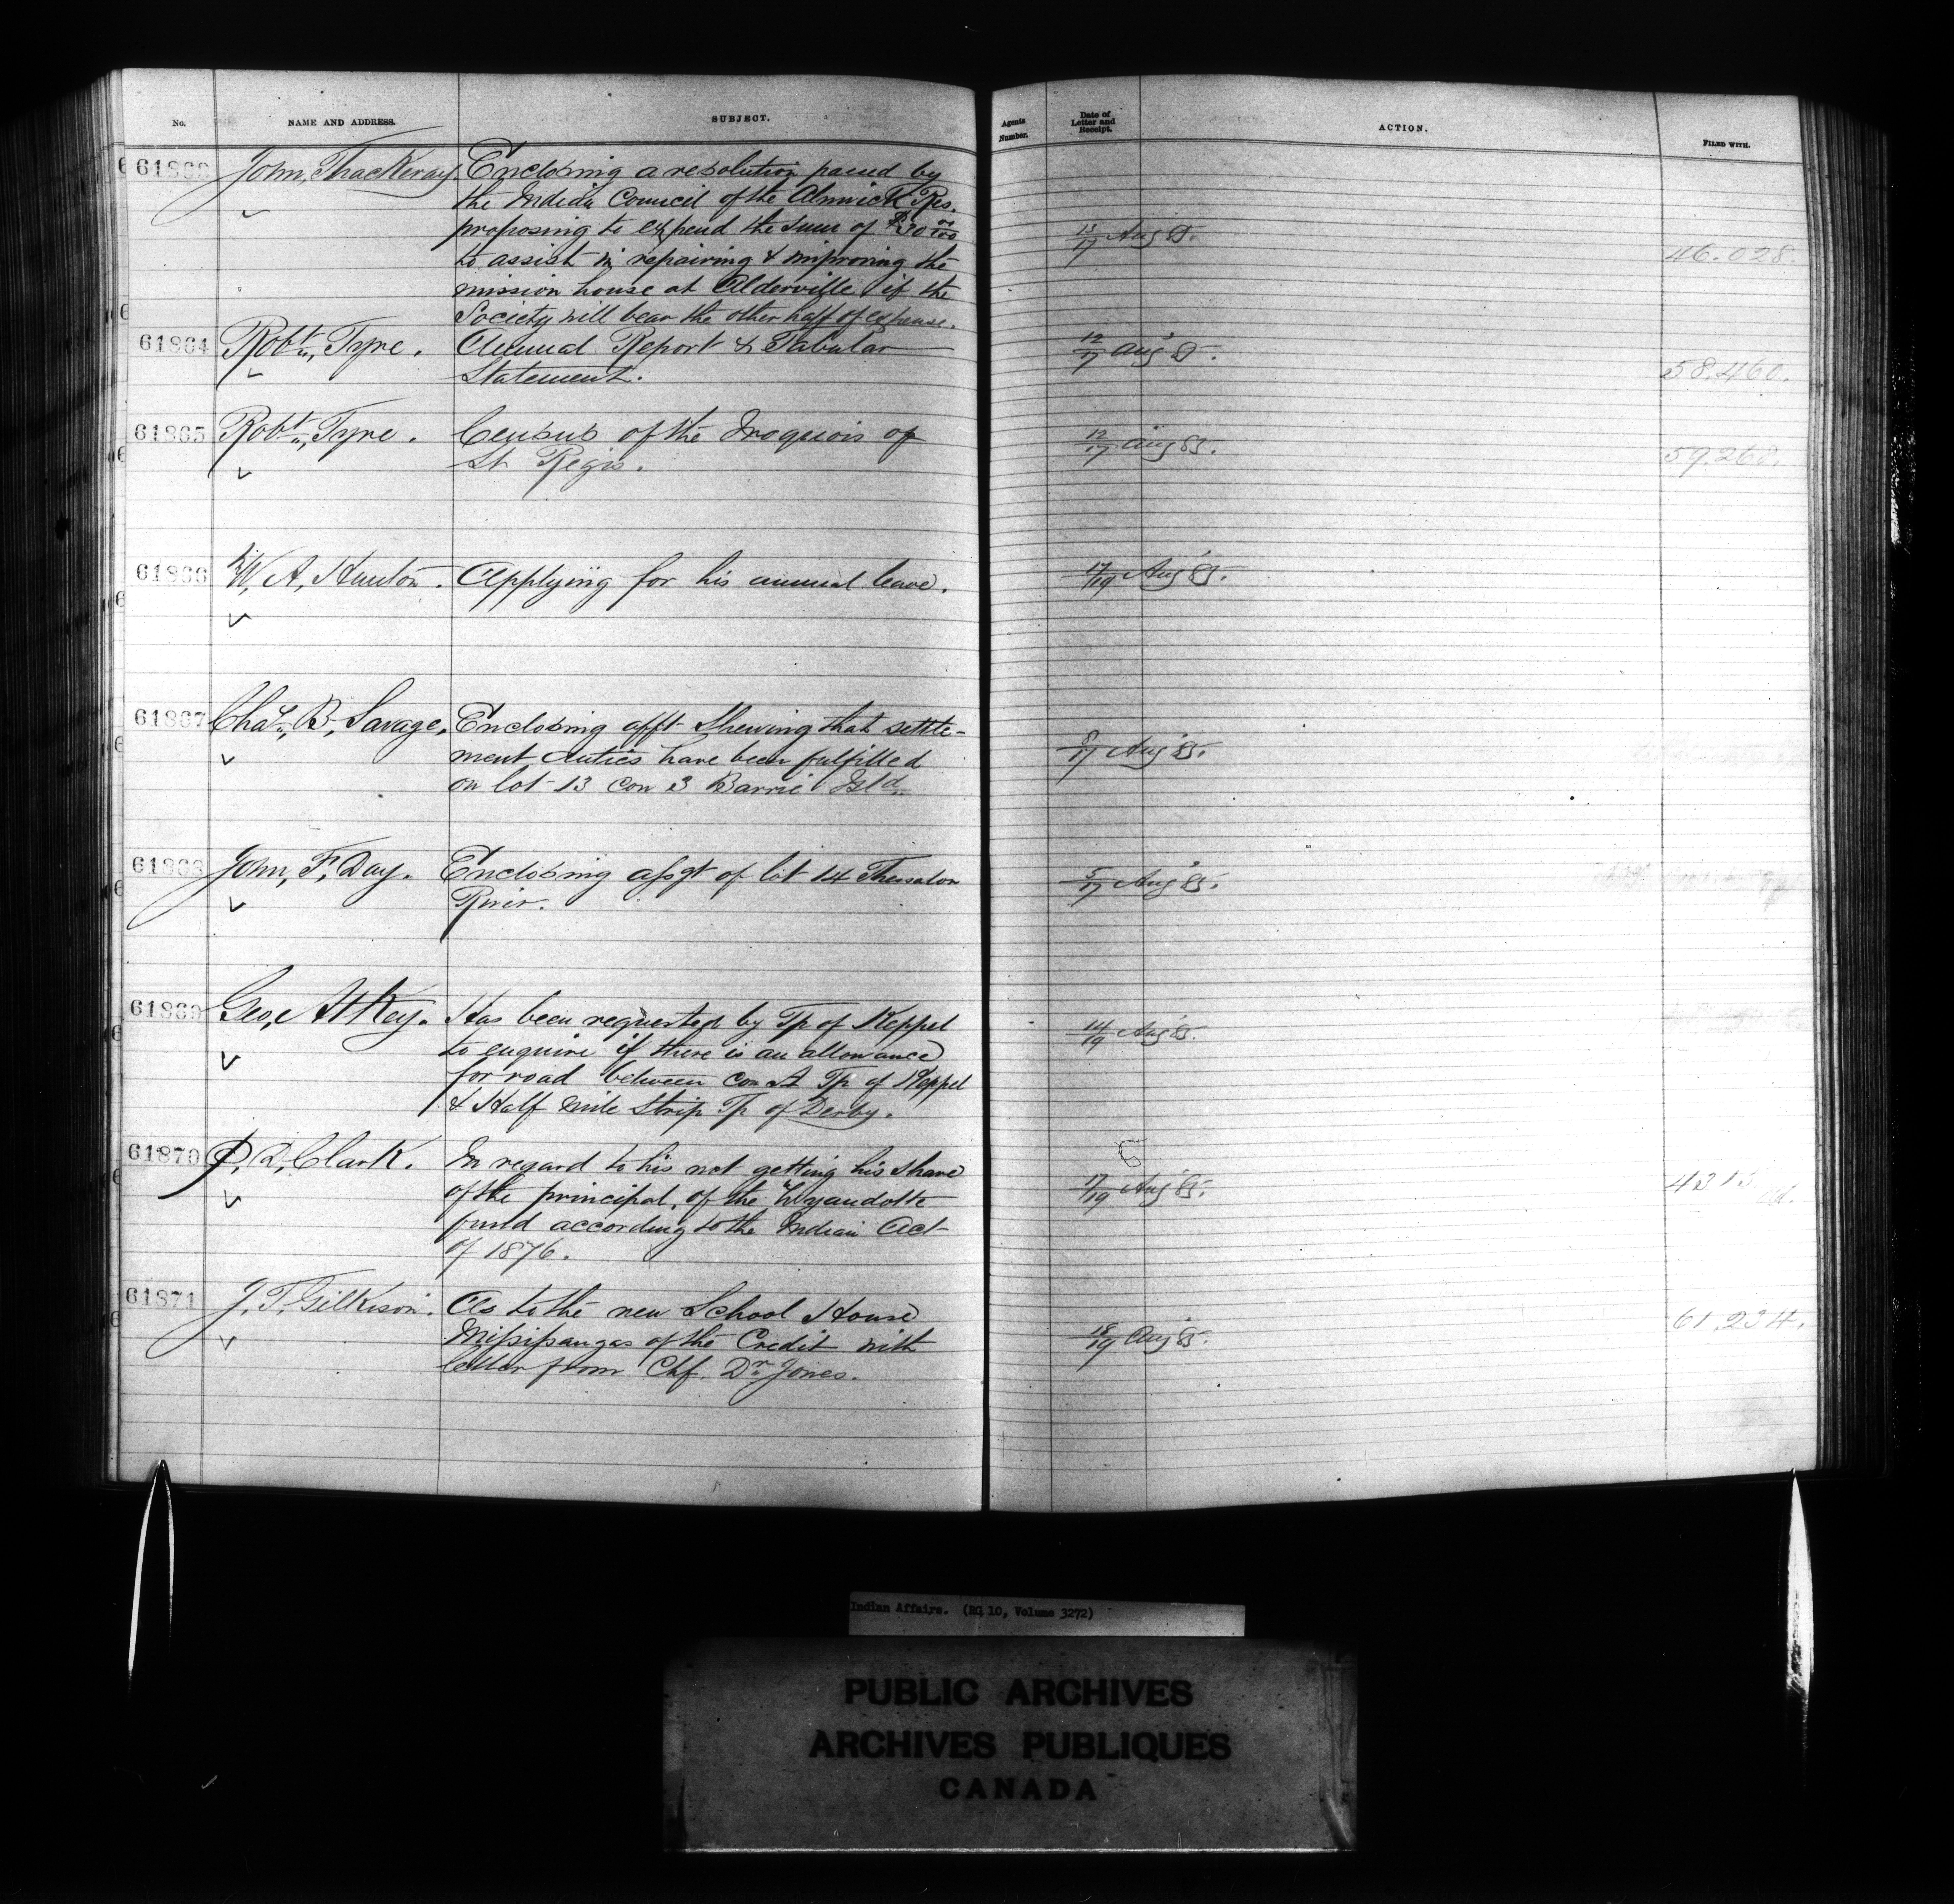 No.
NAME AND ADDRESS.
SUBJECT.
Agents Number.
Date of Letter and Receipt.
ACTION.
FILED WITH.
61863 John, Thackeray Enclosing a resolution passed by
the Indian Council of the Alnwick Res.
proposing to expend the sum of $30 00/100
15/17 Aug 85.
46.028.
to assist in repairing & improving the
mission house at Alderville if the
Society will bear the other half of expense.
61864 Robt., Tyre. Annual Report & Tabular
12/17 Aug 85.
Statement.
58.460.
61865 Robt., Tyre. Census of the Iroquois of
12/17 Aug 85.
St Regis.
59.268.
61866 W, A, Hunton. Applying for his annual leave.
17/19 Aug 85.
61867 Chas., B, Savage, Enclosing afft shewing that settle-
ment duties have been fulfilled
8/17 Aug 85.
on lot 13 con 3 Barrie Isld.
61868 John, F, Day. Enclosing assgt of lot 14 Thessalon
5/17 Aug 85.
River.
61869 Geo, Atkey. Has been requested by Tp of Keppel
14/19 Aug 85.
to enquire if there is an allowance
for road between con A Tp of Keppel
& Half mile Strip Tp of Derby.
61870 P, D, Clark. In regard to his not getting his share
17/19 Aug 85.
of the principal, of the Wyandotte
fund according to the Indian Act
of 1876.
61871 J, T, Gilkison. As to the new School House
61.234.
Missisaugas of the Credit with
18/19 Aug 85.
letter from Chf. Dr. Jones.
Indian Affairs. (RG 10, Volume 3272)
PUBLIC ARCHIVES
ARCHIVES PUBLIQUES
CANADA